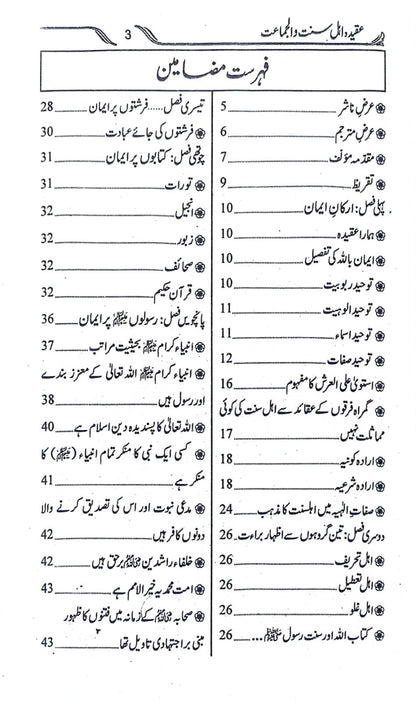 عقیدہ اہل سنت والجماعت
3
فہرست مضامین
عرض ناشر 5
عرض مترجم 6
مقدمہ مؤلف 7
تقریظ 9
پہلی فصل: ارکان ایمان 10
ہمارا عقیدہ 10
ایمان باللہ کی تفصیل 10
توحید ربوبیت 10
توحید الوہیت 11
توحید اسماء 11
توحید صفات 12
استویٰ علی العرش کا مفہوم 16
گمراہ فرقوں کے عقائد سے اہل سنت کی کوئی
مماثلت نہیں 17
ارادہ کونیہ 18
ارادہ شرعیہ 18
صفات الٰہیہ میں اہلسنت کا مذہب 24
دوسری فصل: تین گروہوں سے اظہار براءت 26
اہل تحریف 26
اہل تعطیل 26
اہل غلو 26
کتاب اللہ اور سنت رسول ﷺ... 26
تیسری فصل...... فرشتوں پر ایمان 28
فرشتوں کی جائے عبادت 30
چوتھی فصل: کتابوں پر ایمان 31
تورات 31
انجیل 32
زبور 32
صحائف 32
قرآن حکیم 32
پانچویں فصل: رسولوں ﷺ پر ایمان 36
انبیاء کرام ﷺ بحیثیت مراتب 37
انبیاء کرام ﷺ اللہ تعالیٰ کے معزز بندے
اور رسول ہیں 38
اللہ تعالیٰ کا پسندیدہ دین اسلام ہے 40
کسی ایک نبی کا منکر تمام انبیاء (ﷺ) کا
منکر ہے 41
مدعی نبوت اور اس کی تصدیق کرنے والا
دونوں کافر ہیں 42
خلفاء راشدین برحق ہیں 42
امت محمدیہ خیر الامم ہے 43
صحابہ کے زمانہ میں فتنوں کا ظہور
مبنی بر اجتہادی تاویل تھا 43